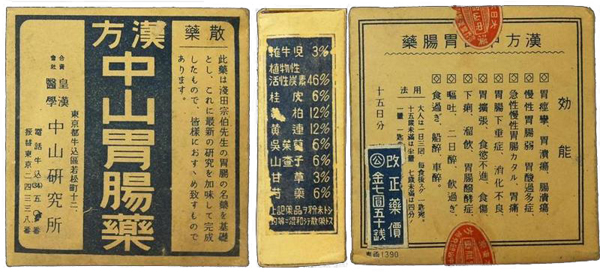 漢方
中山胃腸藥
散藥
此藥は淺田宗伯先生の胃腸の名藥を基礎
とし、これに最新の研究を加味して完成
したもので、皆様におすゝめ致すもので
あります。
東京都牛込區若松町十二
合資會社
皇漢醫學
中山研究所
振替東京二四三三八番
牛児 3%
植物性
活性炭素46%
桂皮 6%
黄柏 12%
黄連 12%
吳茱萸 6%
山査子 6%
甘草 3%
芍藥 6%
上記薬品ヲ粉末トシ
漢方中山胃腸藥
効能
胃痙攣、胃潰瘍、腸潰瘍
慢性胃腸弱、胃酸過多症
急性慢性胃腸カタル、胃痛
胃腸下垂症、消化不良
胃擴張、食慾不進、食傷
下痢、溜飲、胃腸醱酵症
嘔吐、二日醉、飲過ぎ
食過ぎ、船醉、車醉、
用法
大人は一日三回、毎食後スグ一匙宛、
十五歳未滿は半量、七歳未滿は四分ノ
十五日分
改正藥價
公 金七圓五十錢
1390